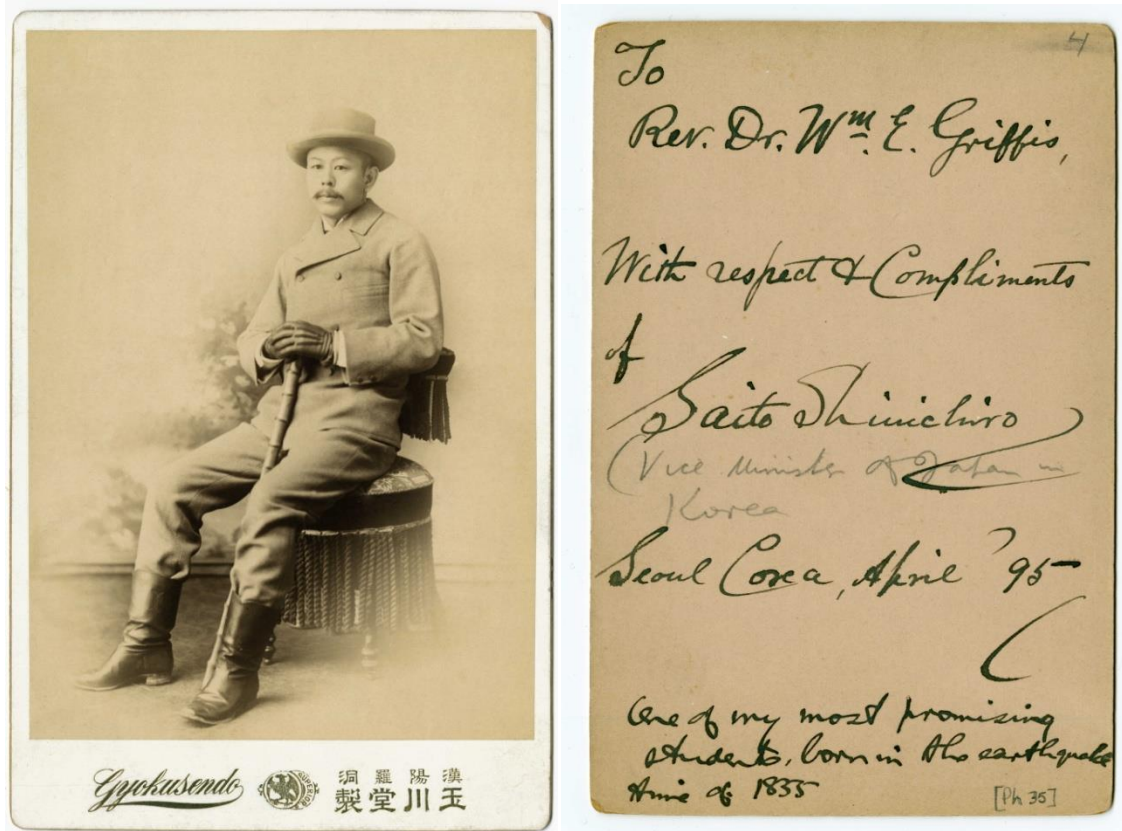 Gyokusendo
SUPERIOR
漢陽羅洞
玉川堂製
4
To
Rev. Dr. Wm. E. Griffis,
With respect & Compliments
of
Saito Shinichiro
(Vice Minister of Japan in
Korea
Seoul Corea, April '95
One of my most promising
students, born in the earthquake
time of 1855
[Ph 35]